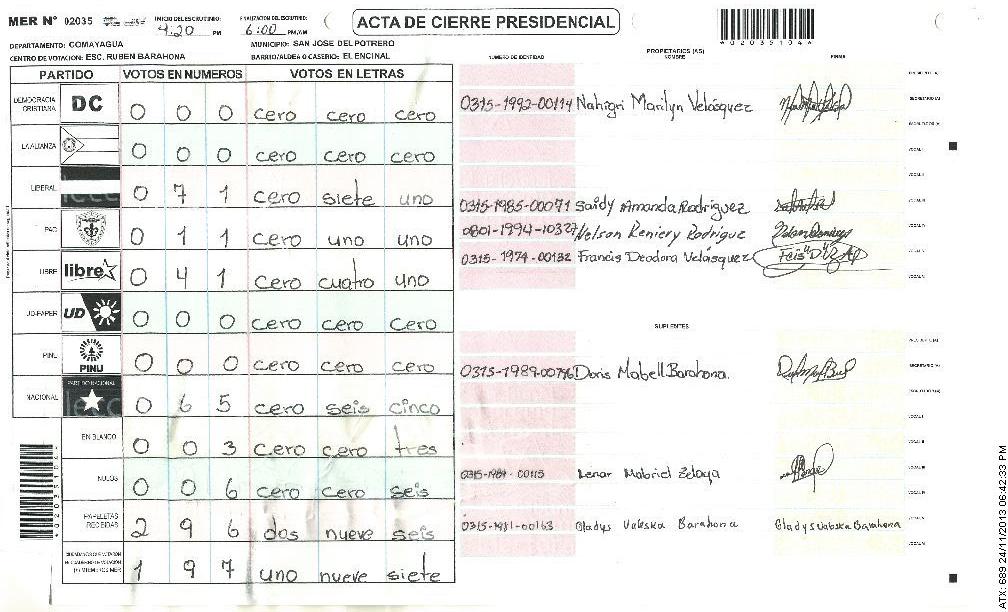 MER N° 02035 INICIO DEL ESCRUTINIO: 4:20 PM FINALIZACION DEL ESCRUTINIO: 6:00 PM/AM ACTA DE CIERRE PRESIDENCIAL
*02035104*
DEPARTAMENTO: COMAYAGUA MUNICIPIO: SAN JOSE DEL POTRERO
CENTRO DE VOTACION: ESC. RUBEN BARAHONA BARRIO/ALDEA O CASERIO: EL ENCINAL
NUMERO DE IDENTIDAD PROPIETARIOS (AS) NOMBRE FIRMA
PARTIDO VOTOS EN NUMEROS VOTOS EN LETRAS
DEMOCRACIA CRISTIANA DC 0 0 0 cero cero cero
0315-1992-00114 Nahigri Marilyn Velásquez SECRETARIO (A)
LA ALIANZA 0 0 0 cero cero cero
LIBERAL 0 7 1 cero siete uno
0315-1985-00071 Saidy Amanda Rodriguez
PAC 0 1 1 cero uno uno
0801-1994-10327 Nelson Reniery Rodriguez
LIBRE libre 0 4 1 cero cuatro uno
0315-1974-00132 Francis Deodora Velásquez
UD-FAPER UD 0 0 0 cero cero cero
SUPLENTES
PINU PINU 0 0 0 cero cero cero
0315-1989-00776 Doris Mabell Barahona. SECRETARIO (A)
NACIONAL PARTIDO NACIONAL 0 6 5 cero seis cinco
EN BLANCO 0 0 3 cero cero tres
NULOS 0 0 6 cero cero seis
0315-1984-00115 Lenar Mabriel Zelaya
PAPELETAS RECIBIDAS 2 9 6 dos nueve seis
0315-1981-00163 Gladys Valeska Barahona Gladys Valeska Barahona
CIUDADANOS QUE VOTARON EN CUADERNO DE VOTACIÓN (+) MIEMBROS MER 1 9 7 uno nueve siete
ATX: 689 24/11/2013 06:42:33 PM